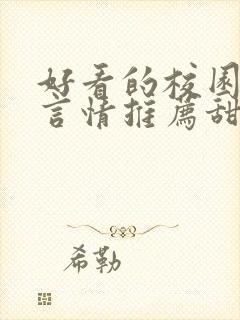 好看的校园
言情推荐甜
希勒